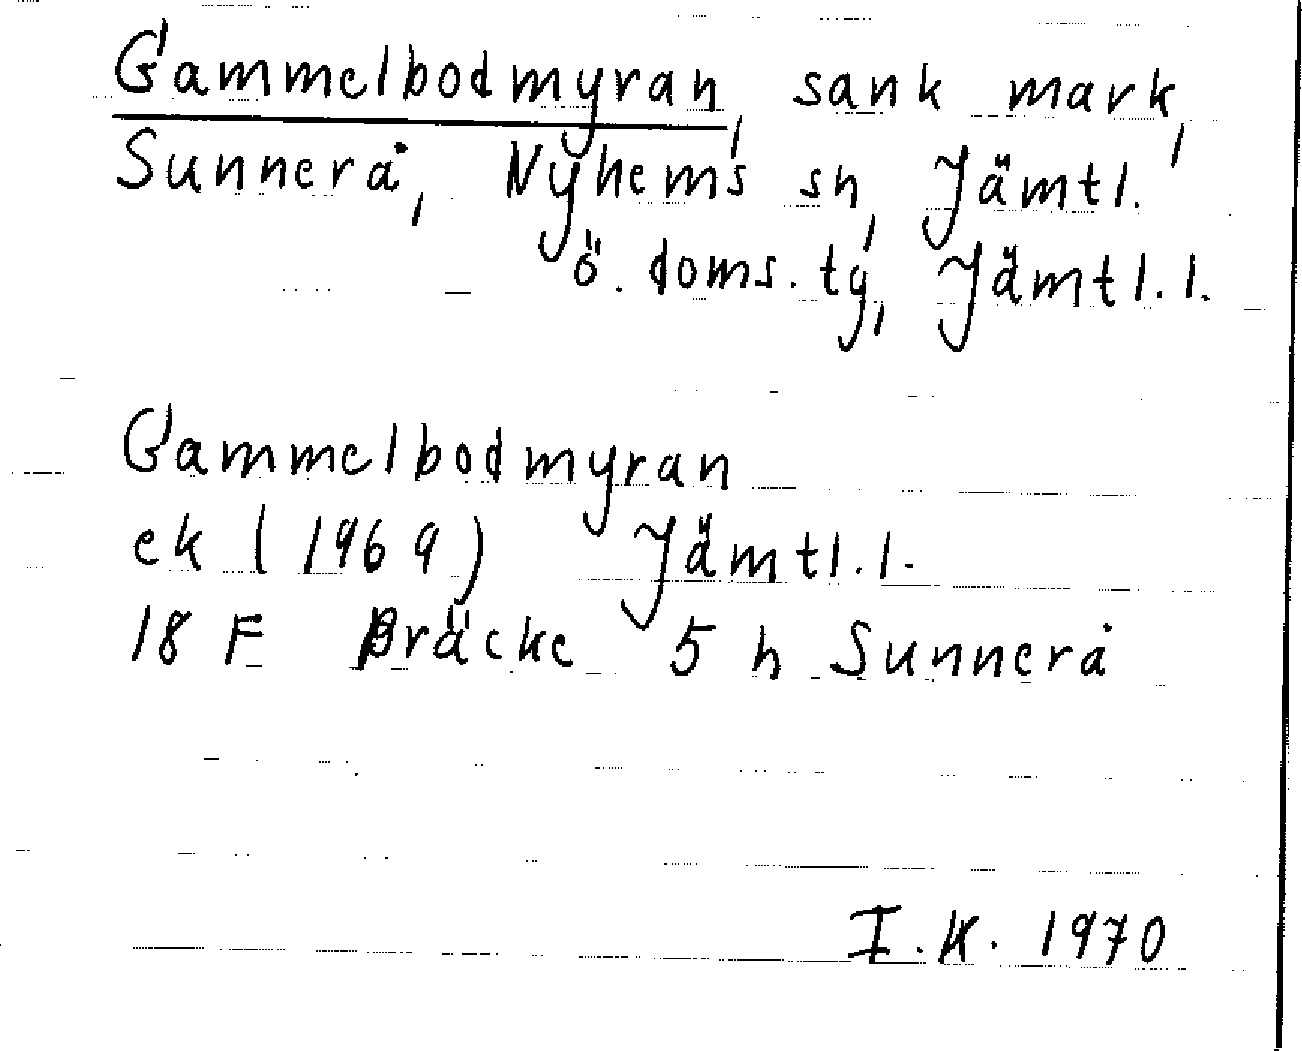 Gammelbodmyran, sank mark,
Sunnerå, Nyhems sn, Jämtl.
ö. doms. tg, Jämtl. l.
Gammelbodmyran
ek (1969) Jämtl. l.
18 F Bräcke 5 h Sunnerå
I. K. 1970